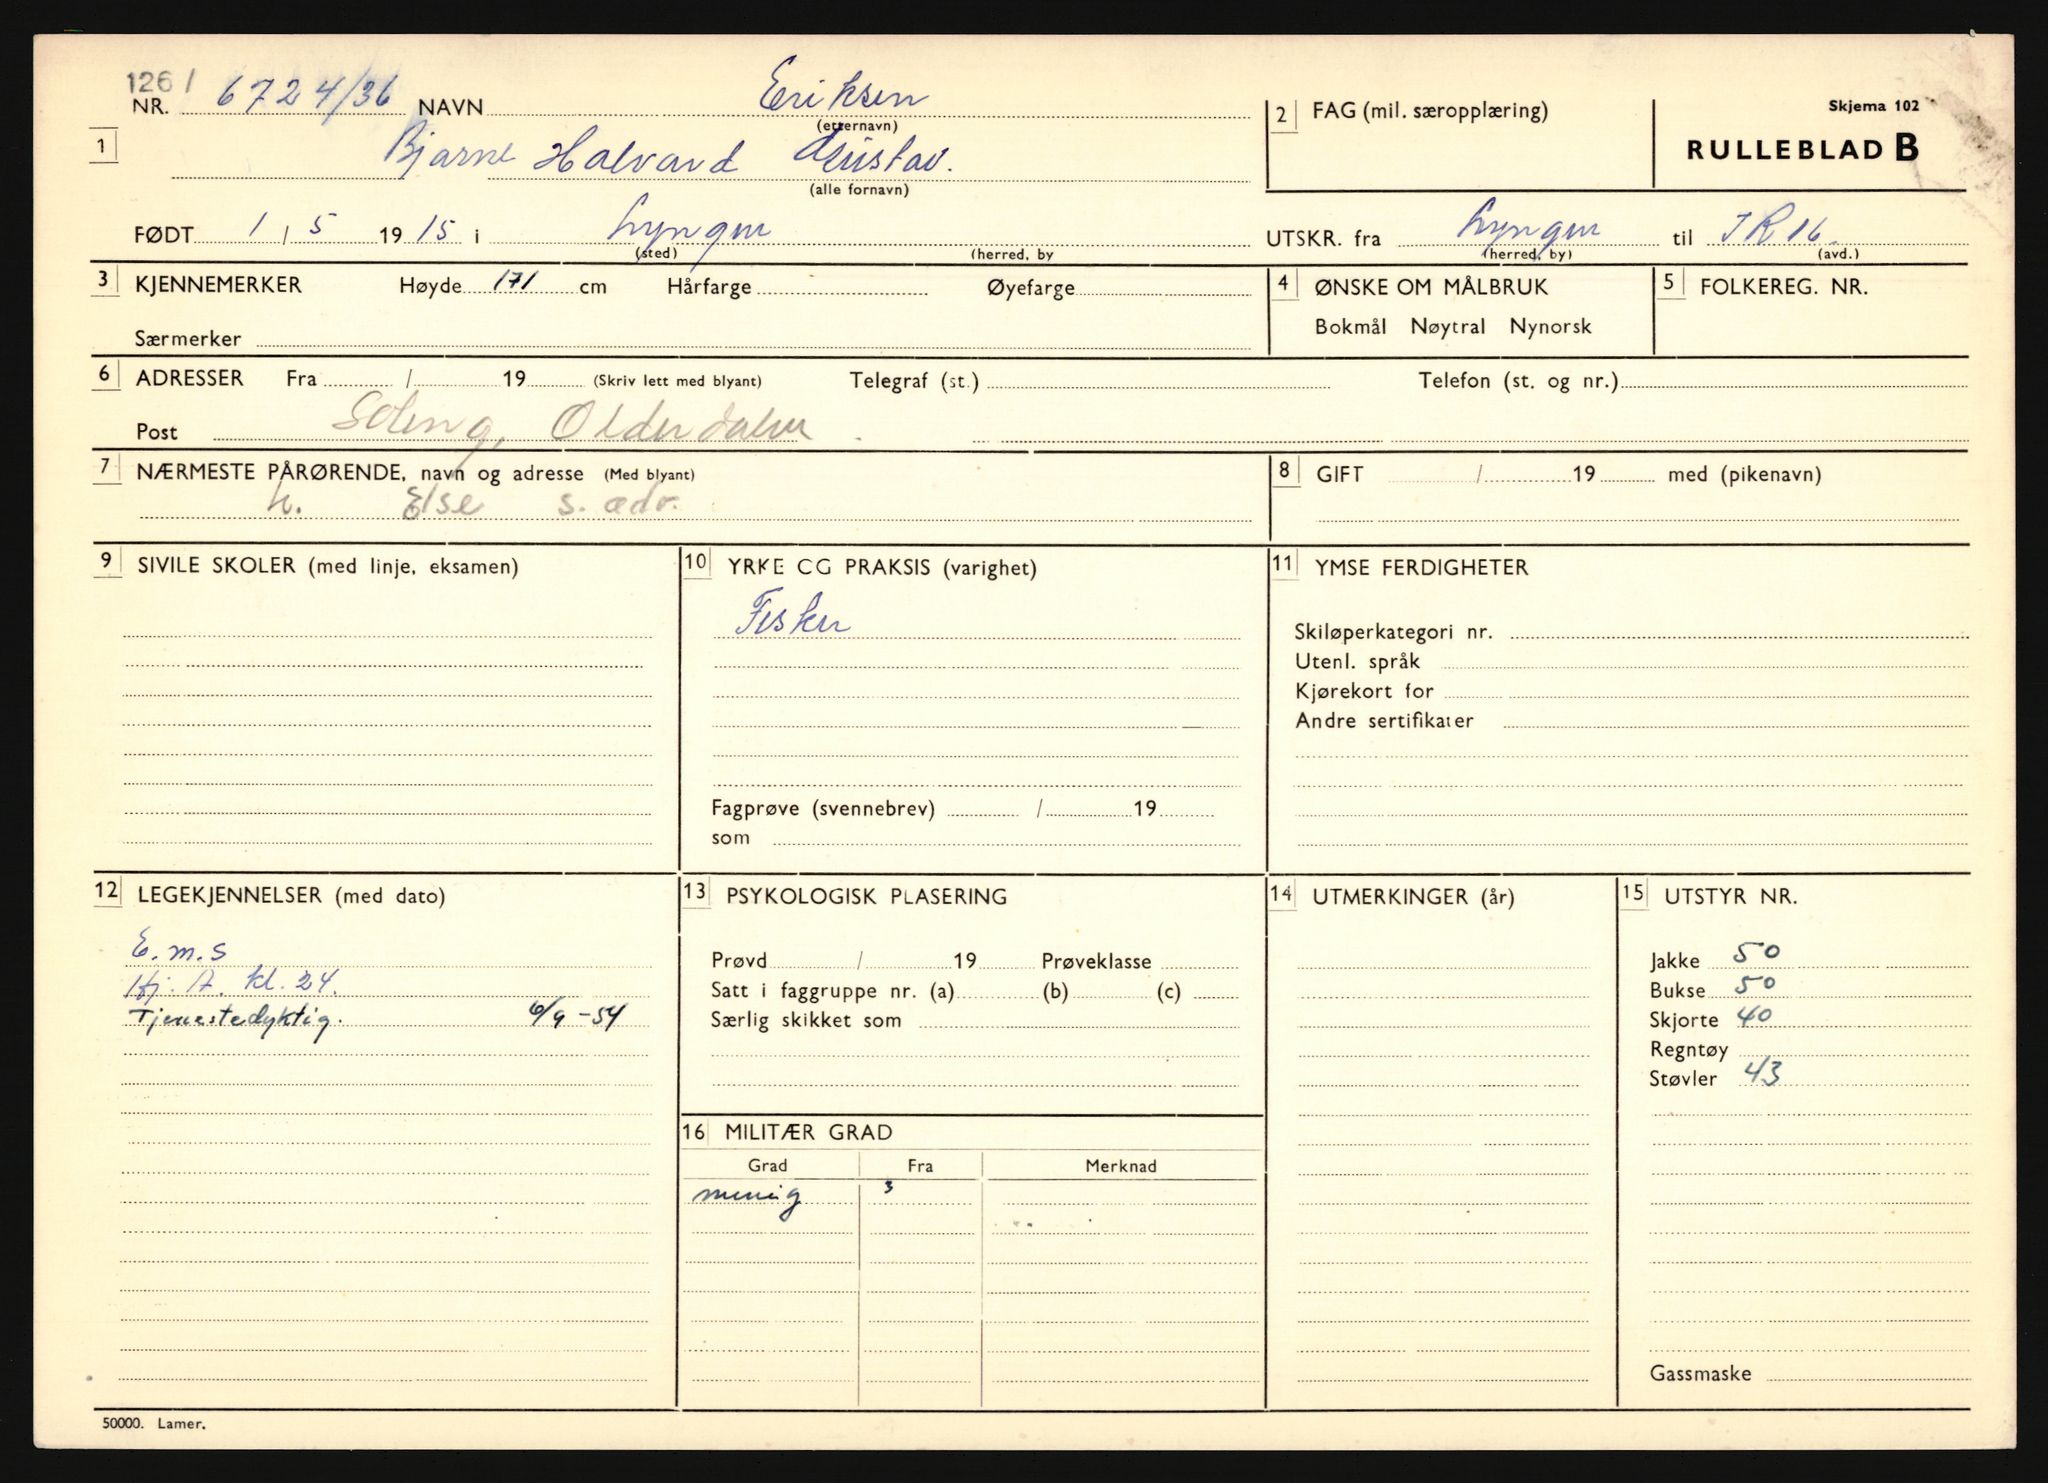 1261
NR. 6724/36 NAVN Eriksen
(etternavn)
1 Bjarne Halvard Gustav.
(alle fornavn)
2 FAG (mil. særopplæring)
Skjema 102
RULLEBLAD B
FØDT 1 / 5 1915 i Lyngen
(sted) (herred, by
UTSKR. fra Lyngen til IR 16.
(herred, by) (avd.)
3 KJENNEMERKER Høyde 171 cm Hårfarge Øyefarge
Særmerker
4 ØNSKE OM MÅLBRUK
Bokmål Nøytral Nynorsk
5 FOLKEREG. NR.
6 ADRESSER Fra / 19 (Skriv lett med blyant) Telegraf (st.) Telefon (st. og nr.)
Post Soleng, Olderdalen
7 NÆRMESTE PÅRØRENDE, navn og adresse (Med blyant)
h. Else s. adr.
8 GIFT / 19 med (pikenavn)
9 SIVILE SKOLER (med linje, eksamen)
10 YRKE CG PRAKSIS (varighet)
Fisker
Fagprøve (svennebrev) / 19
som
11 YMSE FERDIGHETER
Skiløperkategori nr.
Utenl. språk
Kjørekort for
Andre sertifikater
12 LEGEKJENNELSER (med dato)
E.m.s
Hj. A. kl. 24.
Tjenestedyktig. 6/9-54
13 PSYKOLOGISK PLASERING
Prøvd / 19 Prøveklasse
Satt i faggruppe nr. (a) (b) (c)
Særlig skikket som
14 UTMERKINGER (år)
15 UTSTYR NR.
Jakke 50
Bukse 50
Skjorte 40
Regntøy
Støvler 43
Gassmaske
16 MILITÆR GRAD
Grad Fra Merknad
menig 3
50000. Lamer.